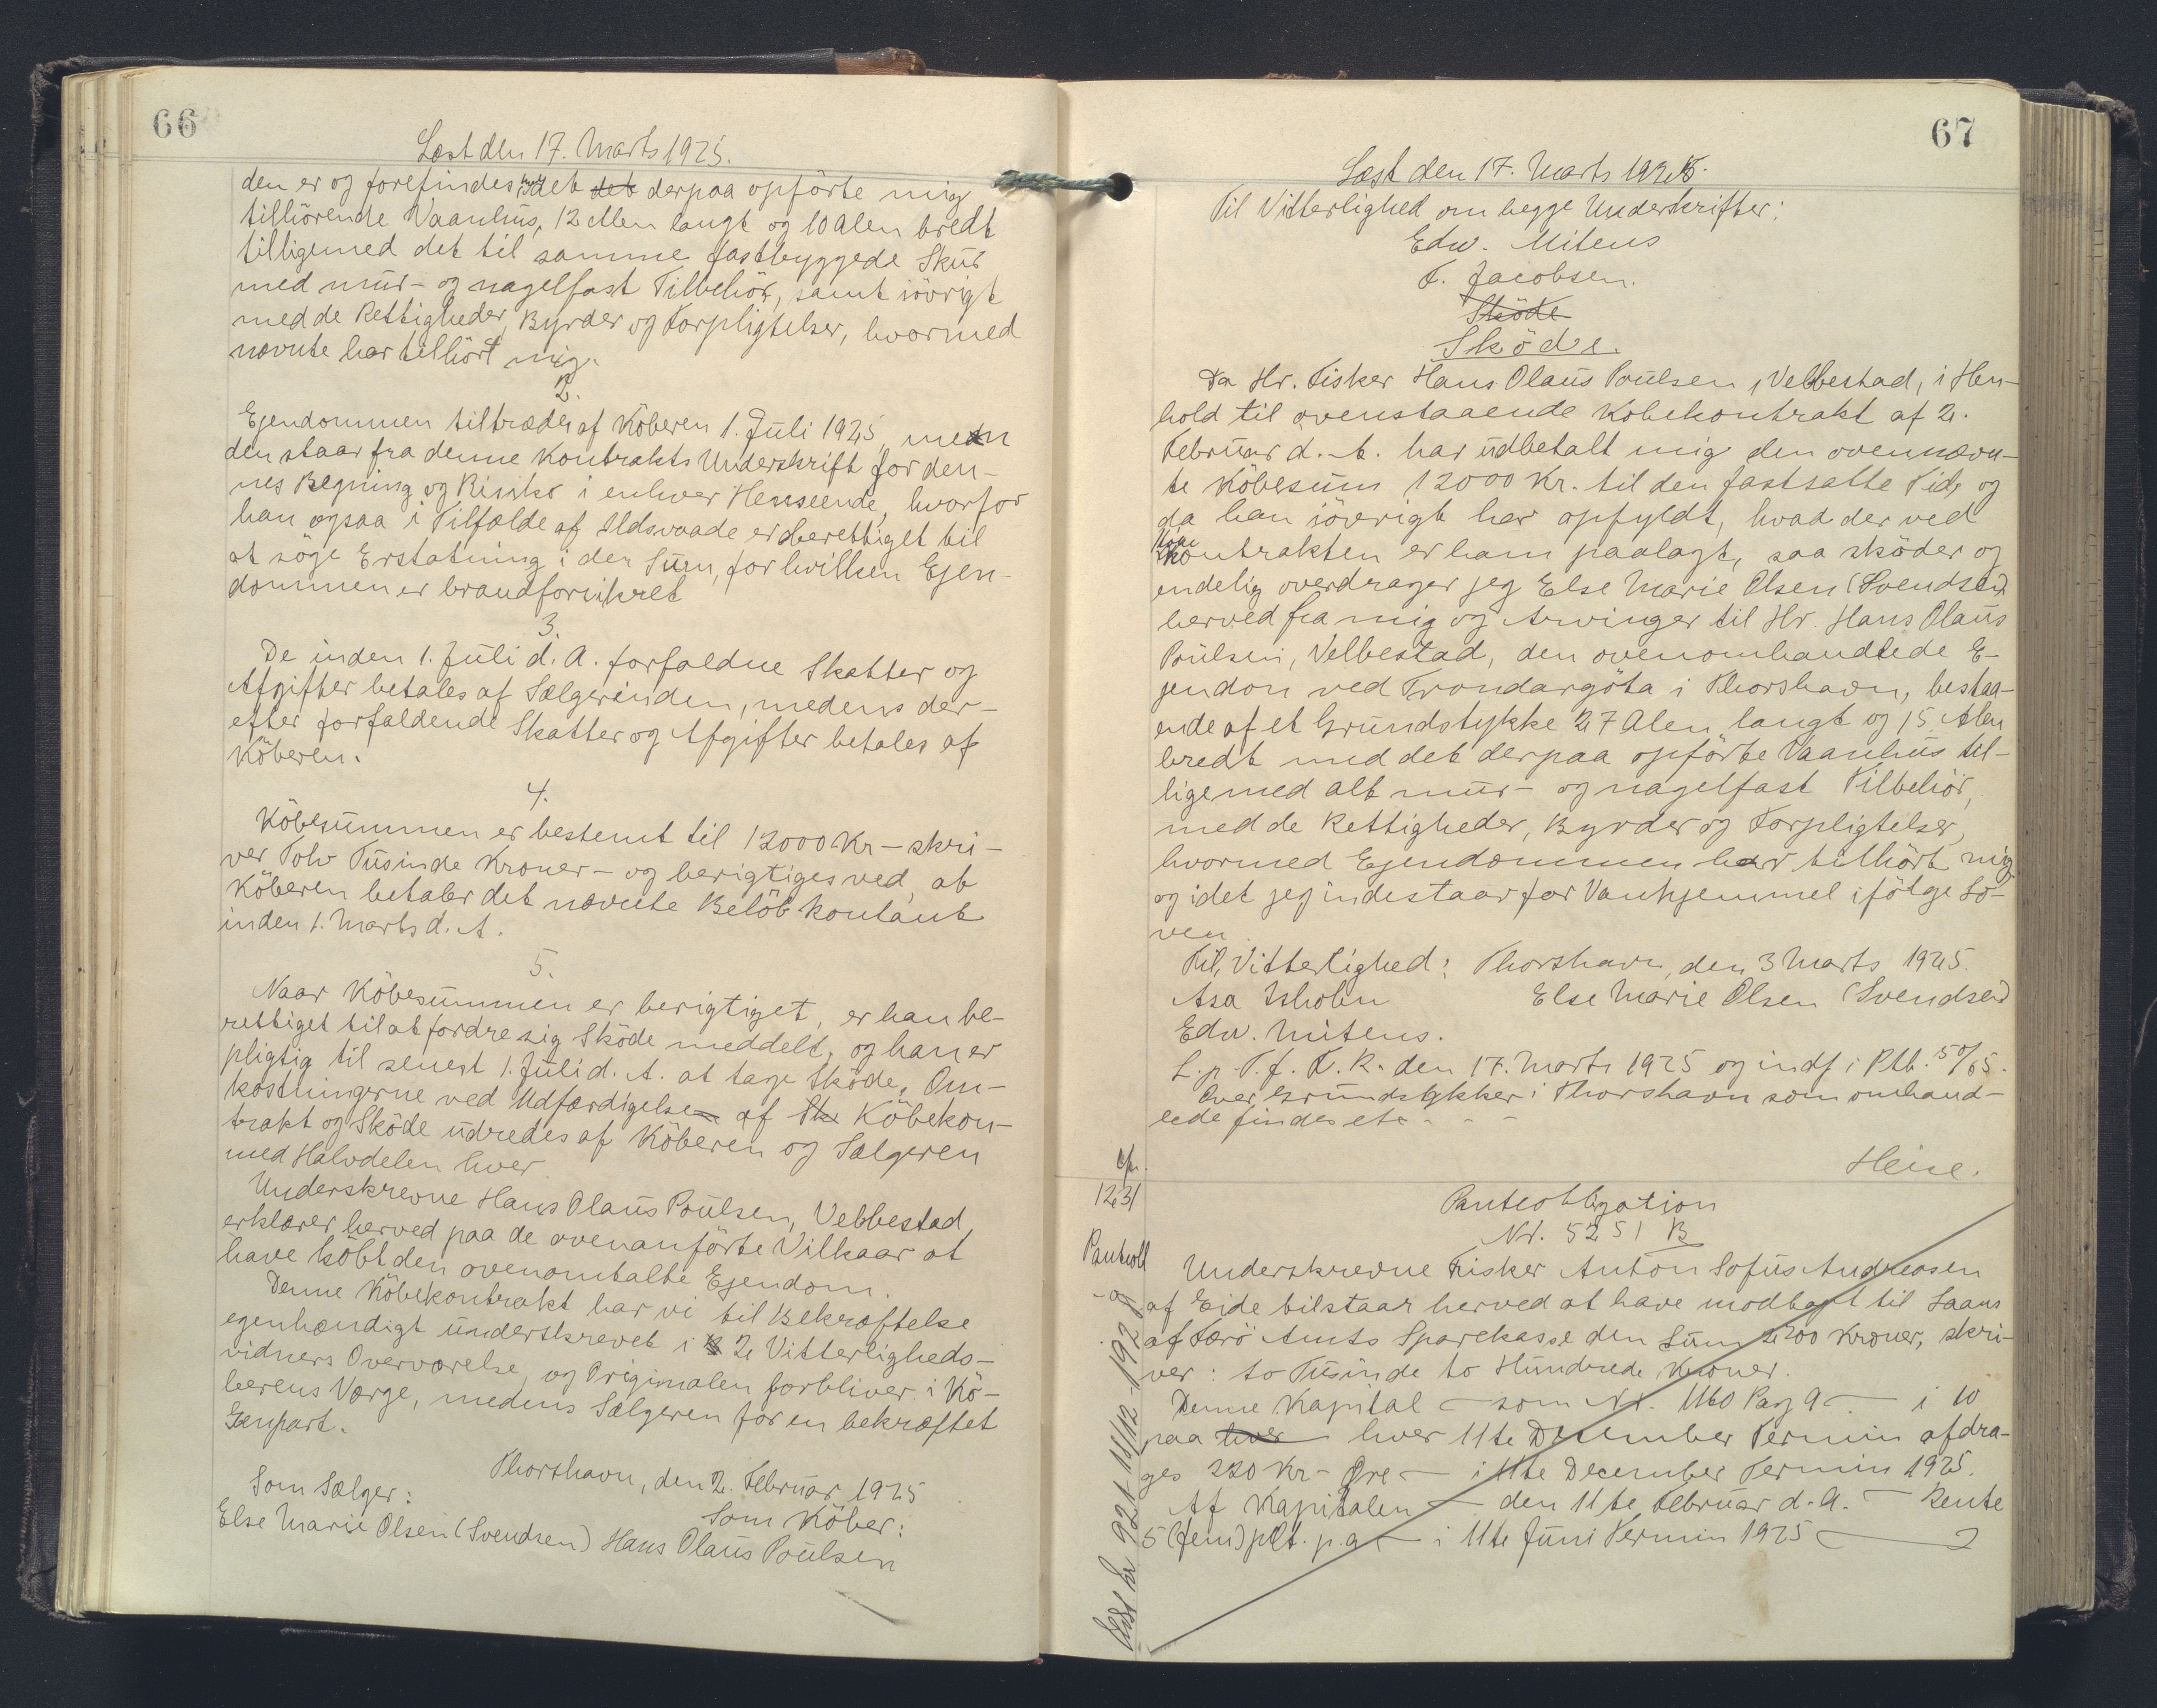 66
Læst den 17. Marts 1925.
den er og forefindes med det det derpaa opförte mig
tilhörende Vaanhus, 12 Alen langt og 10 Alen bredt
tilligemed det til samme fastbyggede Skur
med mur- og nagelfast Tilbehör, samt iövrigt
med de Rettigheder, Byrder og Forpligtelser, hvormed
nævnte har tilhört mig.
2.
Ejendommen tiltrædes af Köberen 1. Juli 1925, men
den staar fra denne Kontrakts Underskrift for den-
nes Regning og Risiko i enhver Henseende, hvorfor
han ogsaa i Tilfælde af Ildsvaade er berettiget til
at söge Erstatning i den Sum, for hvilken Ejen-
dommen er brandforsikret
3.
De inden 1. Juli d. A. forfaldne Skatter og
Afgifter betales af Sælgerinden, medens der-
efter forfaldende Skatter og Afgifter betales af
Köberen.
4.
Köbesummen er bestemt til 12000 Kr - skri-
ver Tolv Tusinde Kroner - og berigtiges ved, at
Köberen betaler det nævnte Belöb kontant
inden 1. Marts d. A.
5.
Naar Köbesummen er berigtiget, er han be-
rettiget til at fordre sig Sköde meddelt, og han er
pligtig til senest 1. Juli d. A. at tage Sköde. Om-
kostningerne ved Udfærdigelse af Sk Köbekon-
trakt og Sköde udredes af Köberen og Sælgeren
med Halvdelen hver
Underskrevne Hans Olaus Poulsen, Velbestad,
erklærer herved paa de ovenanförte Vilkaar at
have köbt den ovenomtalte Ejendom.
Denne Köbekontrakt har vi til Bekræftelse
egenhændigt underskrevet i 2 Vitterligheds-
vidners Overværelse, og Originalen forbliver i Kö-
berens Værge, medens Sælgeren faar en bekræftet
Genpart.
Thorshavn, den 2. Februar 1925
Som Sælger: Som Köber:
Else Marie Olsen (Svendsen) Hans Olaus Poulsen
67
Læst den 17. Marts 1925.
Til Vitterlighed om begge Underskrifter:
Edw. Mitens
F. Jacobsen.
Sköde
Sköde.
Da Hr. Fisker Hans Olaus Poulsen, Velbestad, i Hen-
hold til ovenstaaende Köbekontrakt af 2.
Februar d. A. har udbetalt mig den ovennævn-
te Köbesum 12000 Kr. til den fastsatte Tid, og
da han iövrigt har opfyldt, hvad der ved
Köbekontrakten er ham paalagt, saa sköder og
endelig overdrager jeg Else Marie Olsen (Svendsen)
herved fra mig og Arvinger til Hr. Hans Olaus
Poulsen, Velbestad, den ovenomhandlede E-
jendon ved Trondargöta i Thorshavn, bestaa-
ende af et Grundstykke 27 Alen langt og 15 Alen
bredt med det derpaa opförte Vaanhus til-
ligemed alt mur- og nagelfast Tilbehör,
med de Rettigheder, Byrder og Forpligtelser,
hvormed Ejendommen har tilhört mig
og idet jeg indestaar for Vanhjemmel ifölge Lo-
ven
Til Vitterlighed: Thorshavn, den 3 Marts 1925.
Asa Isholm Else Marie Olsen (Svendsen)
Edw. Mitens.
L. p. T. f. F. R. den 17. Marts 1925 og indf i Ptb. 50/65.
Over Grundstykker i Thorshavn som omhand-
lede findes etc - - -
Heise.
1231
Panteobligation
Nr. 5251 B
Panteobl
Underskrevne Fisker Anton Sofus Andreasen
af Eide tilstaar herved at have modtaget til Laans
af Færö Amts Sparekasse den Sum 2200 Kroner, skri-
ver: to Tusinde to Hundrede Kroner.
Denne Kapital — som Nr. 1160 Pag 9 — i 10
paa hver hver 11te December Termin afdra-
ges 220 Kr - Øre — i 11te December Termin 1925.
Af Kapitalen — den 11te Februar d. A. — Rente
5 (fem) pCt. p. a — i 11te Juni Termin 1925 —